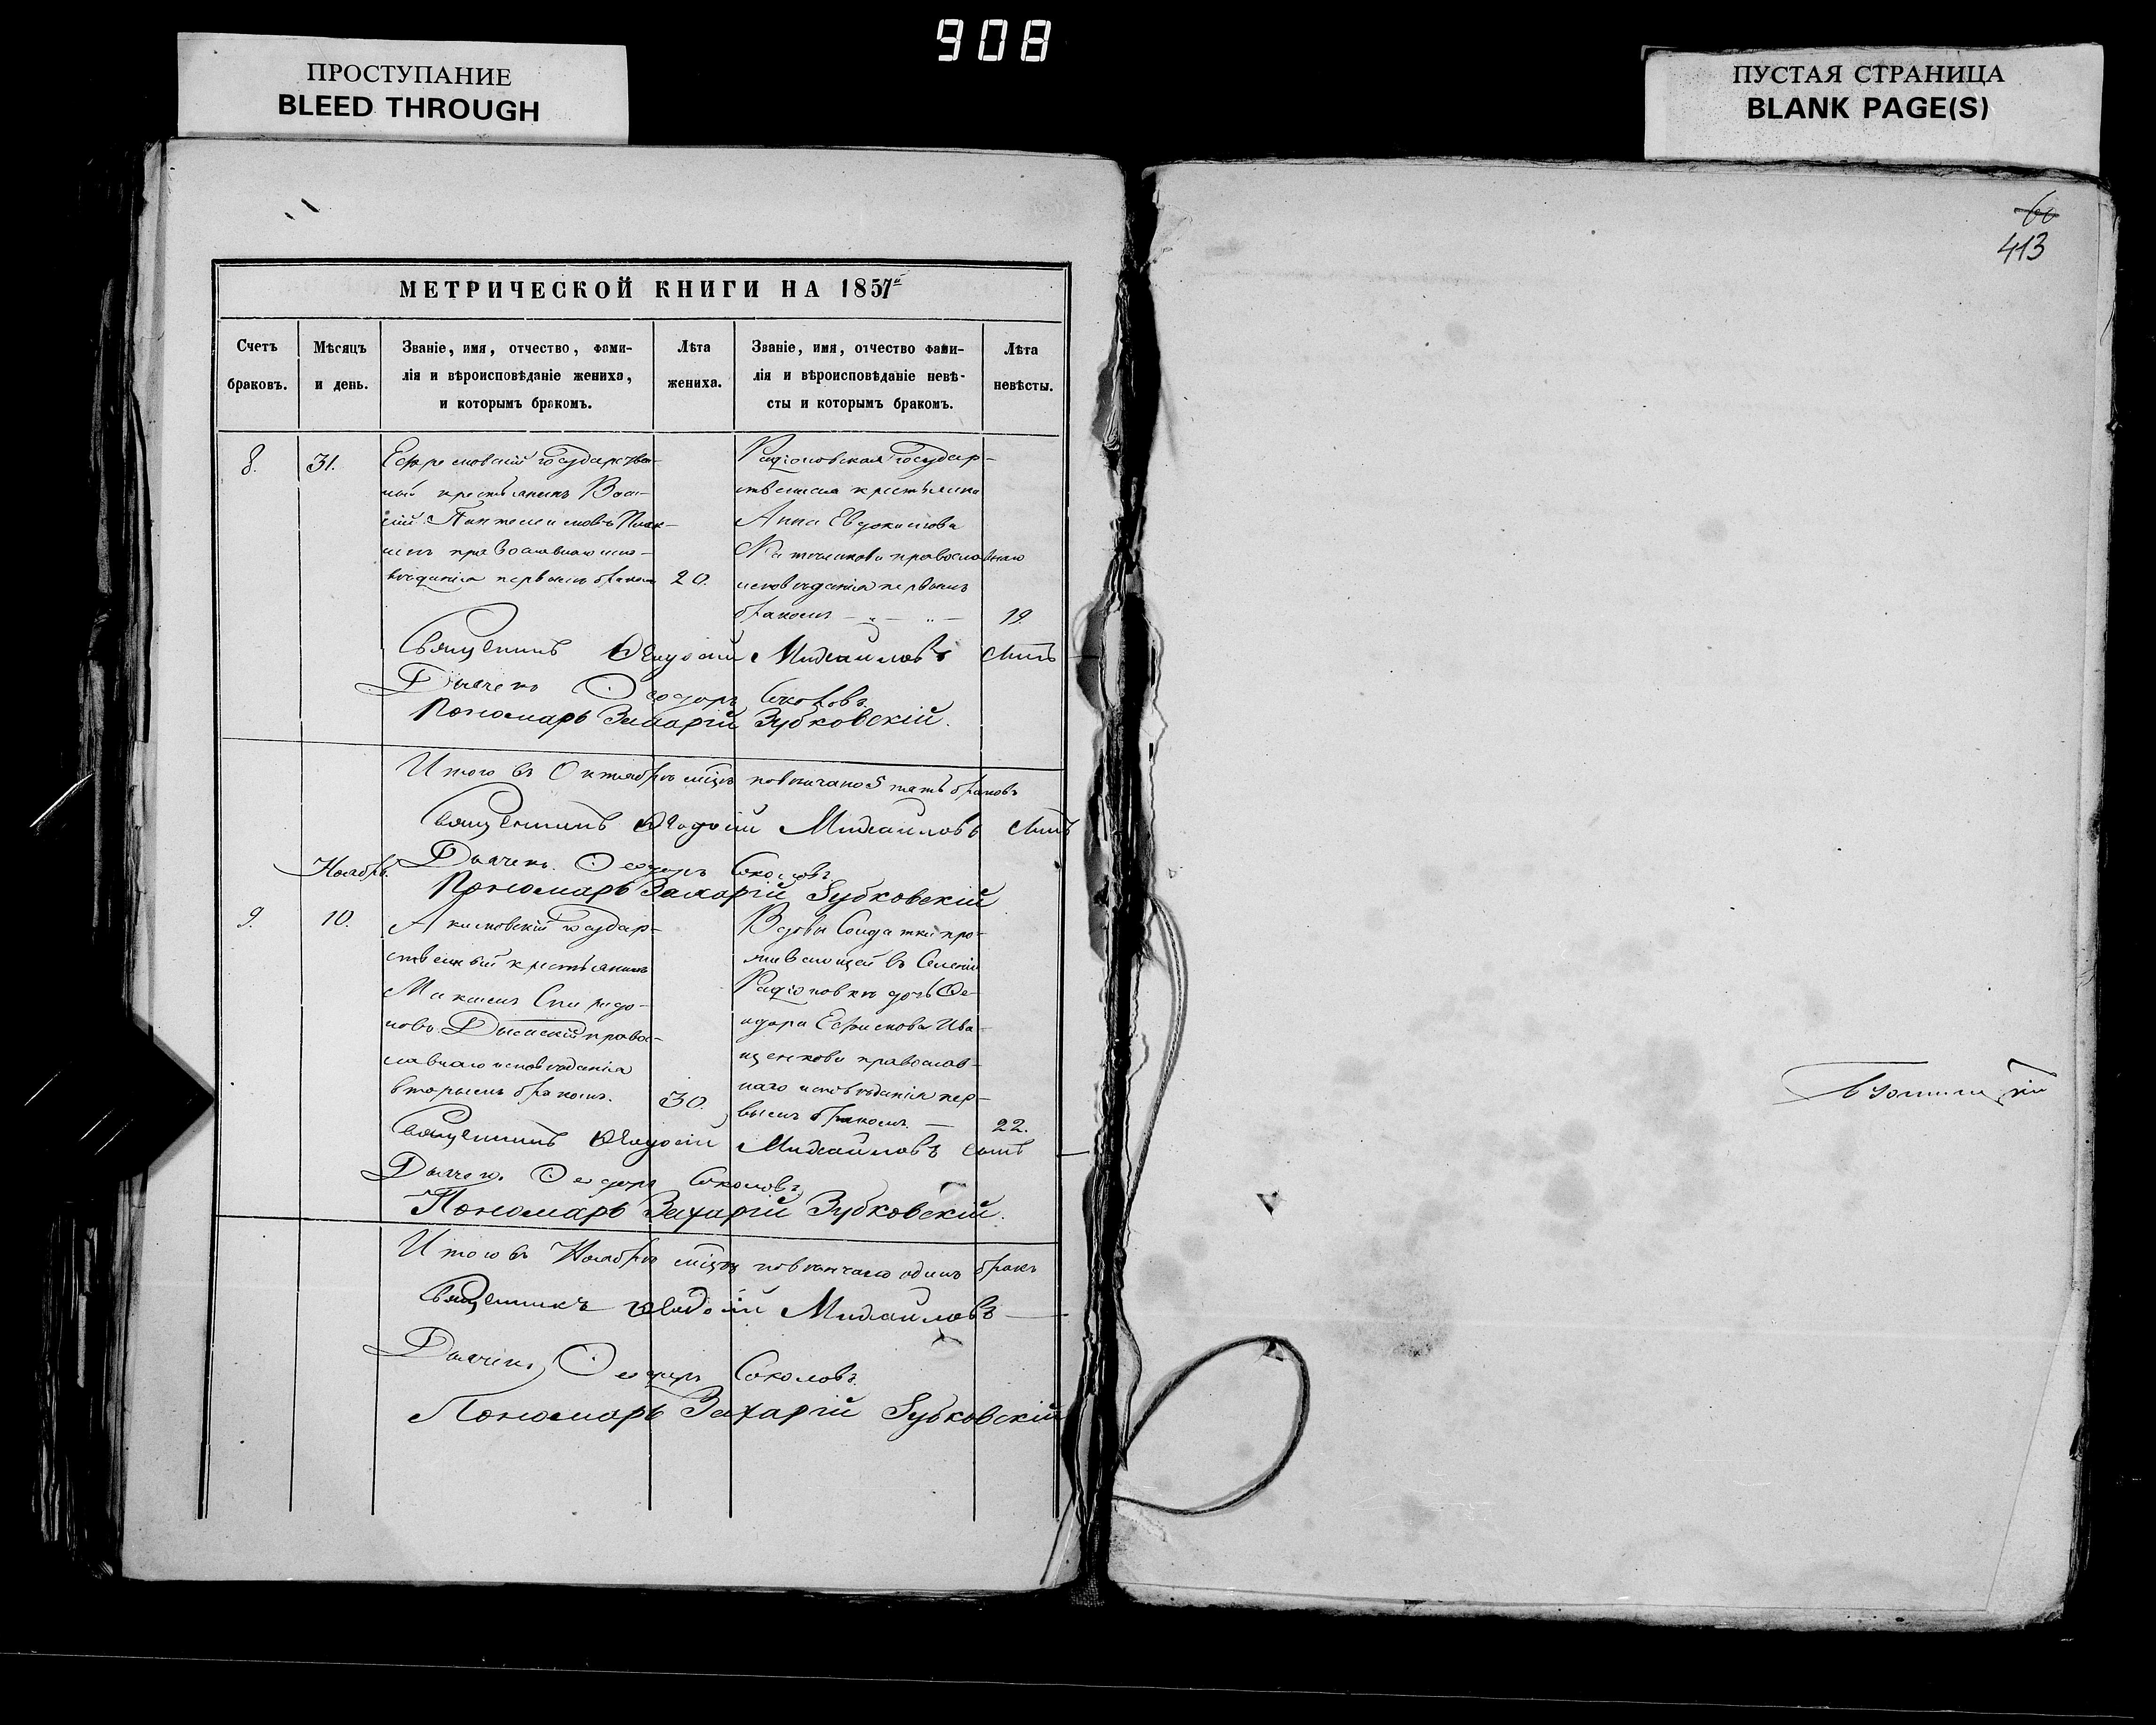 908
ПРОСТУПАНИЕ
BLEED THROUGH
ПУСТАЯ СТРАНИЦА
BLANK PAGE(S)
413
МЕТРИЧЕСКОЙ КНИГИ НА 1857й
Счетъ браковъ.
Мѣсяцъ и день.
Званіе, имя, отчество, фами-
лія и вѣроисповѣданіе жениха,
и которымъ бракомъ.
Лѣта жениха.
Званіе, имя, отчество фами-
лія и вѣроисповѣданіе невѣ-
сты и которымъ бракомъ.
Лѣта невѣсты.
8.
31.
Ефремовскій государствен-
ный крестьянинъ Васи-
лій Пантелеимовъ
православнаго испо-
вѣданія первымъ бракомъ
20.
Радіоновская государ-
ственная крестьянка
Анна Евдокимова
православнаго
исповѣданія первымъ
бракомъ
19.
Священникъ Михаиловъ
Дьячекъ Ѳеодоръ Соколовъ
Пономарь Захарій Зубковскій.
Итого въ Октябрѣ мцѣ повѣнчано 5 пять браковъ
Священникъ Михаиловъ
Дьячекъ Ѳеодоръ Соколовъ
Пономарь Захарій Зубковскій
Ноябрь.
9.
10.
Акимовскій государ-
ственный крестьянинъ
Максимъ Спиридо-
новъ православ-
славнаго исповѣданія
вторымъ бракомъ.
30.
Вдовы Солдатки про-
живающей въ Селеніи
Радіоновкѣ дочь Ѳе-
одора Ефимова Ива-
щенкова православ-
наго исповѣданія пер-
вымъ бракомъ.
22.
Священникъ Михаиловъ
Дьячекъ Ѳеодоръ Соколовъ
Пономарь Захарій Зубковскій.
Итого въ Ноябрѣ мцѣ повѣнчано одинъ бракъ
Священникъ Михаиловъ
Дьячекъ Ѳеодоръ Соколовъ.
Пономарь Захарій Зубковскій